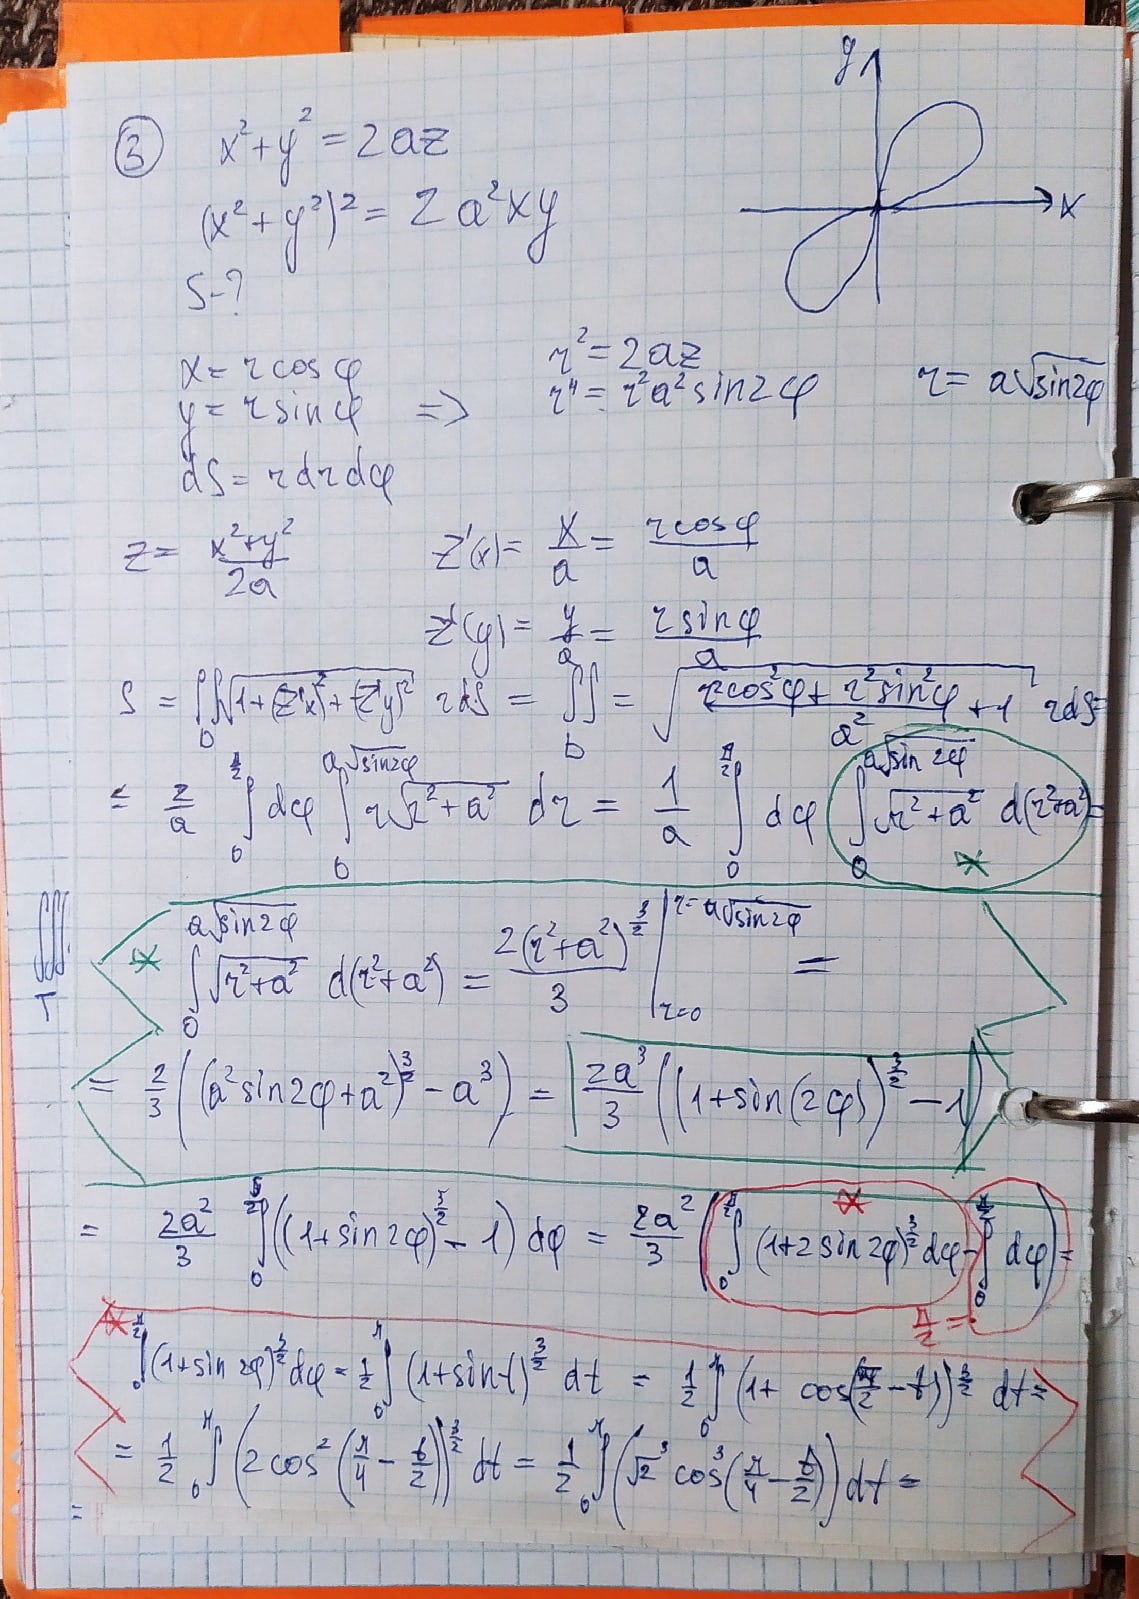 y
x
③ x² + y² = 2az
(x² + y²)² = 2a²xy
S-?
x = r cos φ
y = r sin φ ⇒
r² = 2az
r⁴ = r²a² sin2φ
r = a√(sin2φ)
dS = r dr dφ
z = (x²+y²)/(2a)   z'(x) = x/a = (r cos φ)/a
z'(y) = y/a = (r sin φ)/a
S = ∬_D √(1+(z'x)²+(z'y)²) r dS = ∬_D = √((r cos²φ + r² sin²φ)/a² + 1) r dS =
= 2/a ∫₀^{π/2} dφ ∫₀^{a√(sin2φ)} r√(r²+a²) dr = 1/a ∫₀^{π/2} dφ ∫₀^{a√(sin2φ)} √(r²+a²) d(r²+a²) =
*
∭_T
* ∫₀^{a√(sin2φ)} √(r²+a²) d(r²+a²) = 2(r²+a²)^{3/2}/3 |_{r=0}^{r=a√(sin2φ)} =
= 2/3 ((a² sin2φ + a²)^{3/2} − a³) = 2a³/3 ((1+sin(2φ))^{3/2} − 1)
= 2a²/3 ∫₀^{π/2} ((1+sin2φ)^{3/2} − 1) dφ = 2a²/3 (∫₀^{π/2} (1+2sin2φ)^{3/2} dφ − ∫₀^{π/2} dφ) =
*
π/2 =
* ∫₀^{π/2} (1+sin2φ)^{3/2} dφ = 1/2 ∫₀^π (1+sin t)^{3/2} dt = 1/2 ∫₀^π (1+ cos(π/2 − t))^{3/2} dt =
= 1/2 ∫₀^π (2cos²(π/4 − t/2))^{3/2} dt = 1/2 ∫₀^π (√2³ cos³(π/4 − t/2)) dt =
=